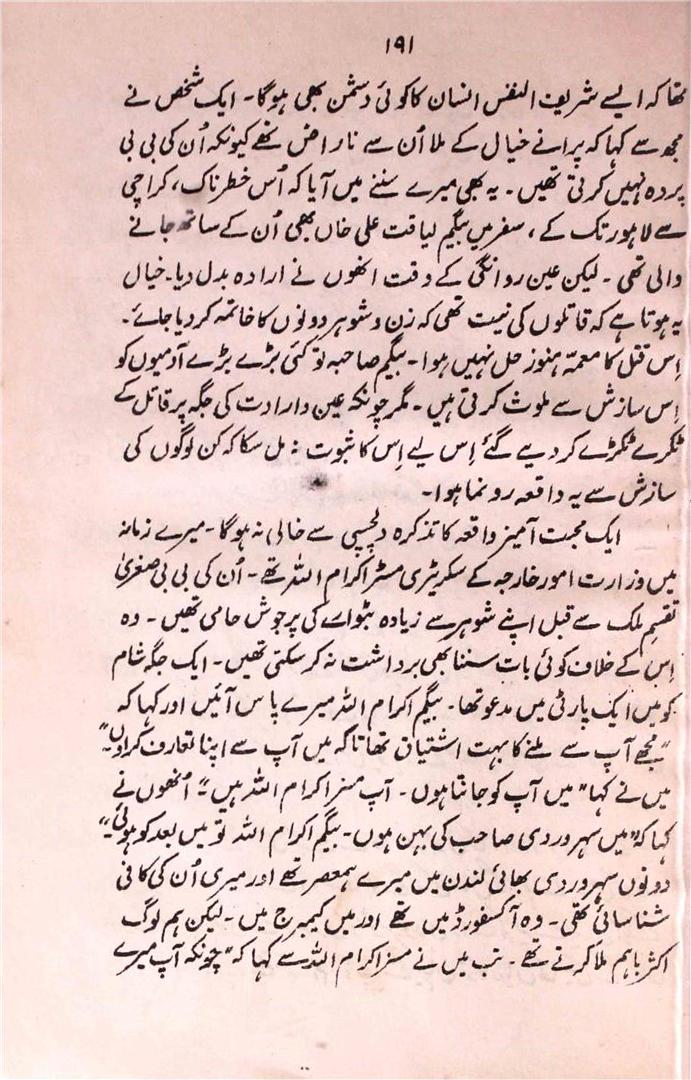 ۱۹۱
تھا کہ ایسے شریف النفس انسان کا کوئی دشمن بھی ہوگا۔ ایک شخص نے
مجھ سے کہا کہ پرانے خیال کے ملا اُن سے ناراض تھے کیونکہ اُن کی بی بی
پردہ نہیں کرتی تھیں۔ یہ بھی میرے سننے میں آیا کہ اُس خطرناک، کراچی
سے لاہور تک کے، سفر میں بیگم لیاقت علی خاں بھی اُن کے ساتھ جانے
والی تھی۔ لیکن عین روانگی کے وقت انھوں نے ارادہ بدل دیا۔ خیال
یہ ہوتا ہے کہ قاتلوں کی نیت تھی کہ زن و شوہر دونوں کا خاتمہ کر دیا جائے۔
اِس قتل کا معمّہ ہنوز حل نہیں ہوا۔ بیگم صاحبہ تو کئی بڑے بڑے آدمیوں کو
اِس سازش سے ملوث کرتی ہیں۔ مگر چونکہ عین واردات کی جگہ پر قاتل کے
ٹکڑے ٹکڑے کر دیے گئے اِس لیے اِس کا ثبوت نہ مل سکا کہ کن لوگوں کی
سازش سے یہ واقعہ رونما ہوا۔
ایک محبت آمیز واقعہ کا تذکرہ دلچسپی سے خالی نہ ہوگا۔ میرے زمانہ
میں وزارت امور خارجہ کے سکریٹری مسٹر اکرام اللہ تھے۔ اُن کی بی بی صغریٰ
تقسیم ملک سے قبل اپنے شوہر سے زیادہ بٹوارے کی پرجوش حامی تھیں۔ وہ
اِس کے خلاف کوئی بات سننا بھی برداشت نہ کر سکتی تھیں۔ ایک جگہ شام
کو میں ایک پارٹی میں مدعو تھا۔ بیگم اکرام اللہ میرے پاس آئیں اور کہا کہ
"مجھے آپ سے ملنے کا بہت اشتیاق تھا تاکہ میں آپ سے اپنا تعارف کراوں۔"
میں نے کہا "میں آپ کو جانتا ہوں۔ آپ مسز اکرام اللہ ہیں۔" اُنھوں نے
کہا کہ "میں سہروردی صاحب کی بہن ہوں۔ بیگم اکرام اللہ تو میں بعد کو ہوئی۔"
دونوں سہروردی بھائی لندن میں میرے ہمعصر تھے اور میری اُن کی کافی
شناسائی تھی۔ وہ آکسفورڈ میں تھے اور میں کیمبرج میں۔ لیکن ہم لوگ
اکثر باہم ملا کرتے تھے۔ تب میں نے مسز اکرام اللہ سے کہا کہ "چونکہ آپ میرے